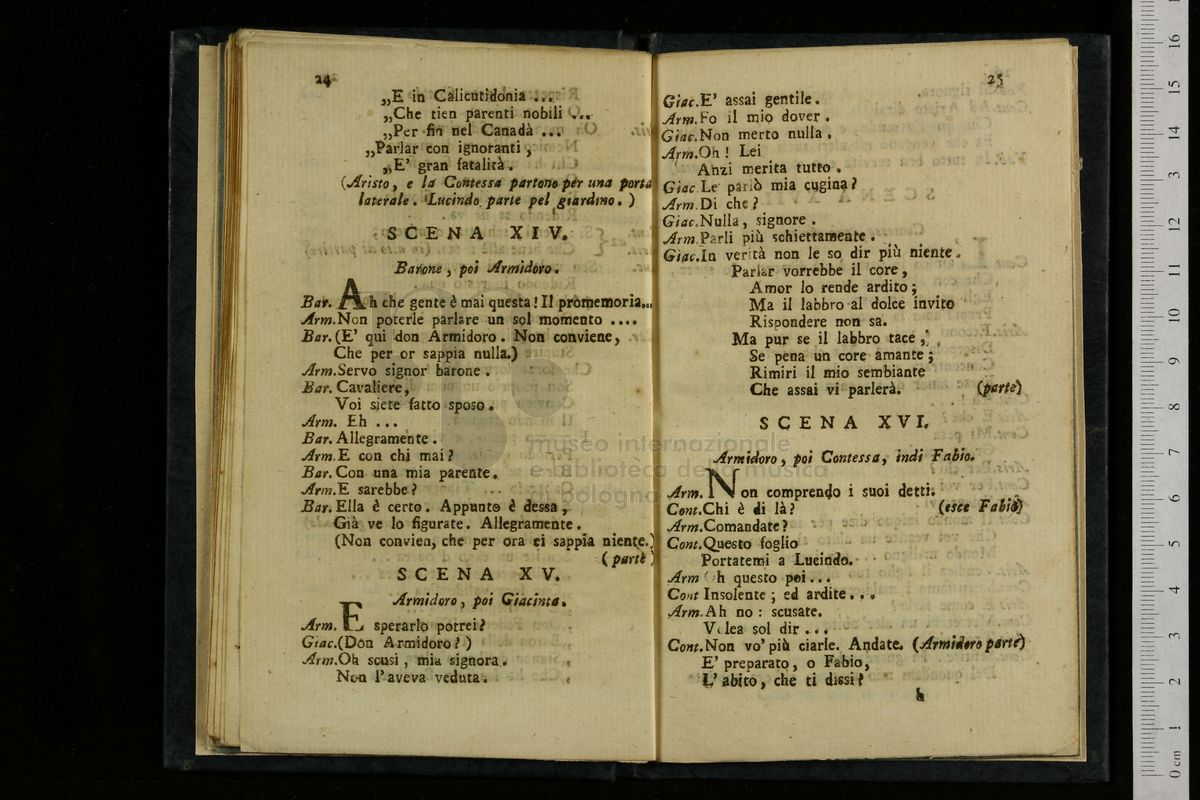 24
„E in Calicutidonia ...
„Che tien parenti nobili ...
„Per fin nel Canadà ...
„Parlar con ignoranti,
„E' gran fatalità.
(Aristo, e la Contessa partono per una porta
laterale. Lucindo parte pel giardino.)
SCENA XIV.
Barone, poi Armidoro.
Bar. Ah che gente è mai questa! Il promemoria...
Arm. Non poterle parlare un sol momento ....
Bar. (E' qui don Armidoro. Non conviene,
Che per or sappia nulla.)
Arm. Servo signor barone.
Bar. Cavaliere,
Voi siete fatto sposo.
Arm. Eh ...
Bar. Allegramente.
Arm. E con chi mai?
Bar. Con una mia parente.
Arm. E sarebbe?
Bar. Ella è certo. Appunto è dessa,
Già ve lo figurate. Allegramente.
(Non convien, che per ora ei sappia niente.)
(parte)
SCENA XV.
Armidoro, poi Giacinta.
Arm. E sperarlo potrei?
Giac. (Don Armidoro?)
Arm. Oh scusi, mia signora.
Non l'aveva veduta.
25
Giac. E' assai gentile.
Arm. Fo il mio dover.
Giac. Non merto nulla.
Arm. Oh! Lei
Anzi merita tutto.
Giac. Le parlò mia cugina?
Arm. Di che?
Giac. Nulla, signore.
Arm. Parli più schiettamente.
Giac. In verità non le so dir più niente.
Parlar vorrebbe il core,
Amor lo rende ardito;
Ma il labbro al dolce invito
Rispondere non sa.
Ma pur se il labbro tace,
Se pena un core amante;
Rimiri il mio sembiante
Che assai vi parlerà. (parte)
SCENA XVI.
Armidoro, poi Contessa, indi Fabio.
Arm. Non comprendo i suoi detti.
Cont. Chi è di là? (esce Fabio)
Arm. Comandate?
Cont. Questo foglio
Portatemi a Lucindo.
Arm Oh questo poi...
Cont Insolente; ed ardite...
Arm. Ah no: scusate.
Volea sol dir ...
Cont. Non vo' più ciarle. Andate. (Armidoro parte)
E' preparato, o Fabio,
L'abito, che ti dissi?
b
museo internazionale
e biblioteca della musica
di bologna
0 cm 1 2 3 4 5 6 7 8 9 10 11 12 13 14 15 16